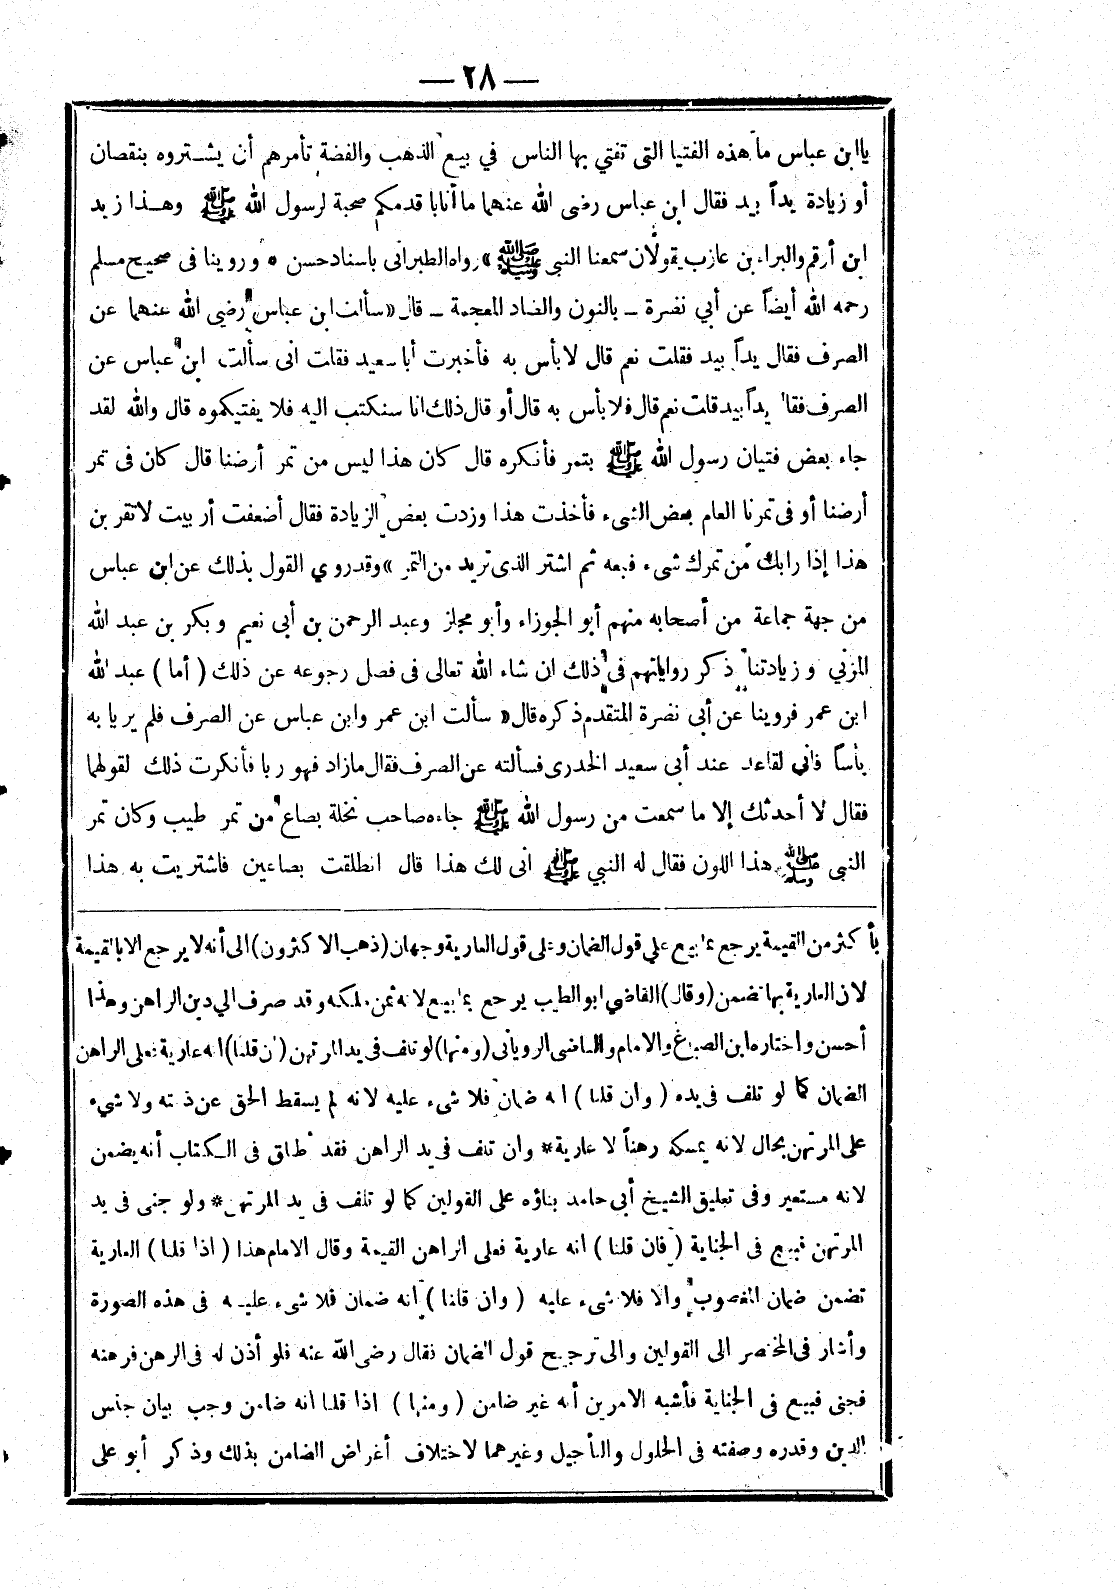 — ٢٨ —
ياابن عباس ما هذه الفتيا التى تفتي بها الناس في بيع الذهب والفضة تأمرهم أن يشتروه بنقصان
أو زيادة يداً بيد فقال ابن عباس رضى الله عنهما ما أنابا قدمكم صحبة لرسول الله ﷺ وهذا زيد
ابن أرقم والبراء بن عازب يقولان سمعنا النبى ﷺ» رواه الطبرانى باسناد حسن * وروينا فى صحيح مسلم
رحمه الله أيضاً عن أبي نضرة ــ بالنون والضاد المعجمة ــ قال «سألت ابن عباس رضى الله عنهما عن
الصرف فقال يداً بيد فقلت نعم قال لا بأس به فأخبرت أبا سعيد فقلت انى سألت ابن عباس عن
الصرف فقال يداً بيد قلت نعم قال فلا بأس به قال أو قال ذلك انا سنكتب اليه فلا يفتيكموه قال والله لقد
جاء بعض فتيان رسول الله ﷺ بتمر فأنكره قال كان هذا ليس من تمر أرضنا قال كان فى تمر
أرضنا أو فى تمرنا العام بعض الشىء فأخذت هذا وزدت بعض الزيادة فقال أضعفت أربيت لا تقربن
هذا إذا رابك من تمرك شىء فبعه ثم اشتر الذى تريد من التمر» وقد روي القول بذلك عن ابن عباس
من جهة جماعة من أصحابه منهم أبو الجوزاء وأبو مجلز وعبد الرحمن بن أبى نعيم وبكر بن عبد الله
المزني وزيادتنا ذكر رواياتهم فى ذلك ان شاء الله تعالى فى فصل رجوعه عن ذلك (أما) عبد الله
ابن عمر فروينا عن أبي نضرة المتقدم ذكره قال «سألت ابن عمر وابن عباس عن الصرف فلم يريا به
بأساً فاني لقاعد عند أبى سعيد الخدرى فسألته عن الصرف فقال مازاد فهو ربا فأنكرت ذلك لقولهما
فقال لا أحدثك إلا ما سمعت من رسول الله ﷺ جاءه صاحب نخلة بصاع من تمر طيب وكان تمر
النبى ﷺ هذا اللون فقال له النبي ﷺ انى لك هذا قال انطلقت بصاعين فاشتريت به هذا
بأكثر من القيمة يرجع بما بيع علي قول الضمان وعلى قول العارية وجهان (ذهب الاكثرون) الى أنه لا يرجع الا بالقيمة
لان العارية بها تضمن (وقال) القاضي ابو الطيب يرجع بما بيع لانه ثمن ملكه وقد صرف الي دين الراهن وهذا
أحسن واختاره ابن الصباغ والامام والقاضى الرويانى (ومنها) لو تلف فى يد المرتهن (ان قلنا) انه عارية فعلى الراهن
الضمان كما لو تلف فى يده (وان قلنا) انه ضمان فلا شىء عليه لانه لم يسقط الحق عن ذمته ولا شىء
على المرتهن بحال لانه يمسكه رهناً لا عارية * وان تلف فى يد الراهن فقد أطلق فى الكتاب أنه يضمن
لانه مستعير وفى تعليق الشيخ أبي حامد بناؤه على القولين كما لو تلف فى يد المرتهن * ولو جنى فى يد
المرتهن فبيع فى الجناية (فان قلنا) انه عارية فعلى الراهن القيمة وقال الامام هذا (اذا قلنا) العارية
تضمن ضمان المغصوب والا فلا شىء عليه (وان قلنا) أنه ضمان فلا شىء عليه فى هذه الصورة
وأشار فى المختصر الى القولين والى ترجيح قول الضمان فقال رضى الله عنه فلو أذن له فى الرهن فرهنه
فجنى فبيع فى الجناية فأشبه الامرين أنه غير ضامن (ومنها) اذا قلنا انه ضامن وجب بيان جنس
الدين وقدره وصفته فى الحلول والتأجيل وغيرهما لاختلاف أغراض الضامن بذلك وذكر أبو على